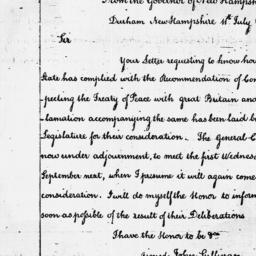 From the Governor of New Hampsh
Durham New Hampshire 1st July
Sir
Your Letter requesting to know how
State has complied with the Recommendation of Con
-pecting the Treaty of Peace with great Britain and
-lamation accompanying the same has been laid b
Legislature for their consideration. The general C
now under adjournment, to meet the first Wednes
September next, when I presume it will again come
consideration. I will do myself the Honor to inform
soon as possible of the result of their Deliberations
I have the Honor to be &c
John Sullivan